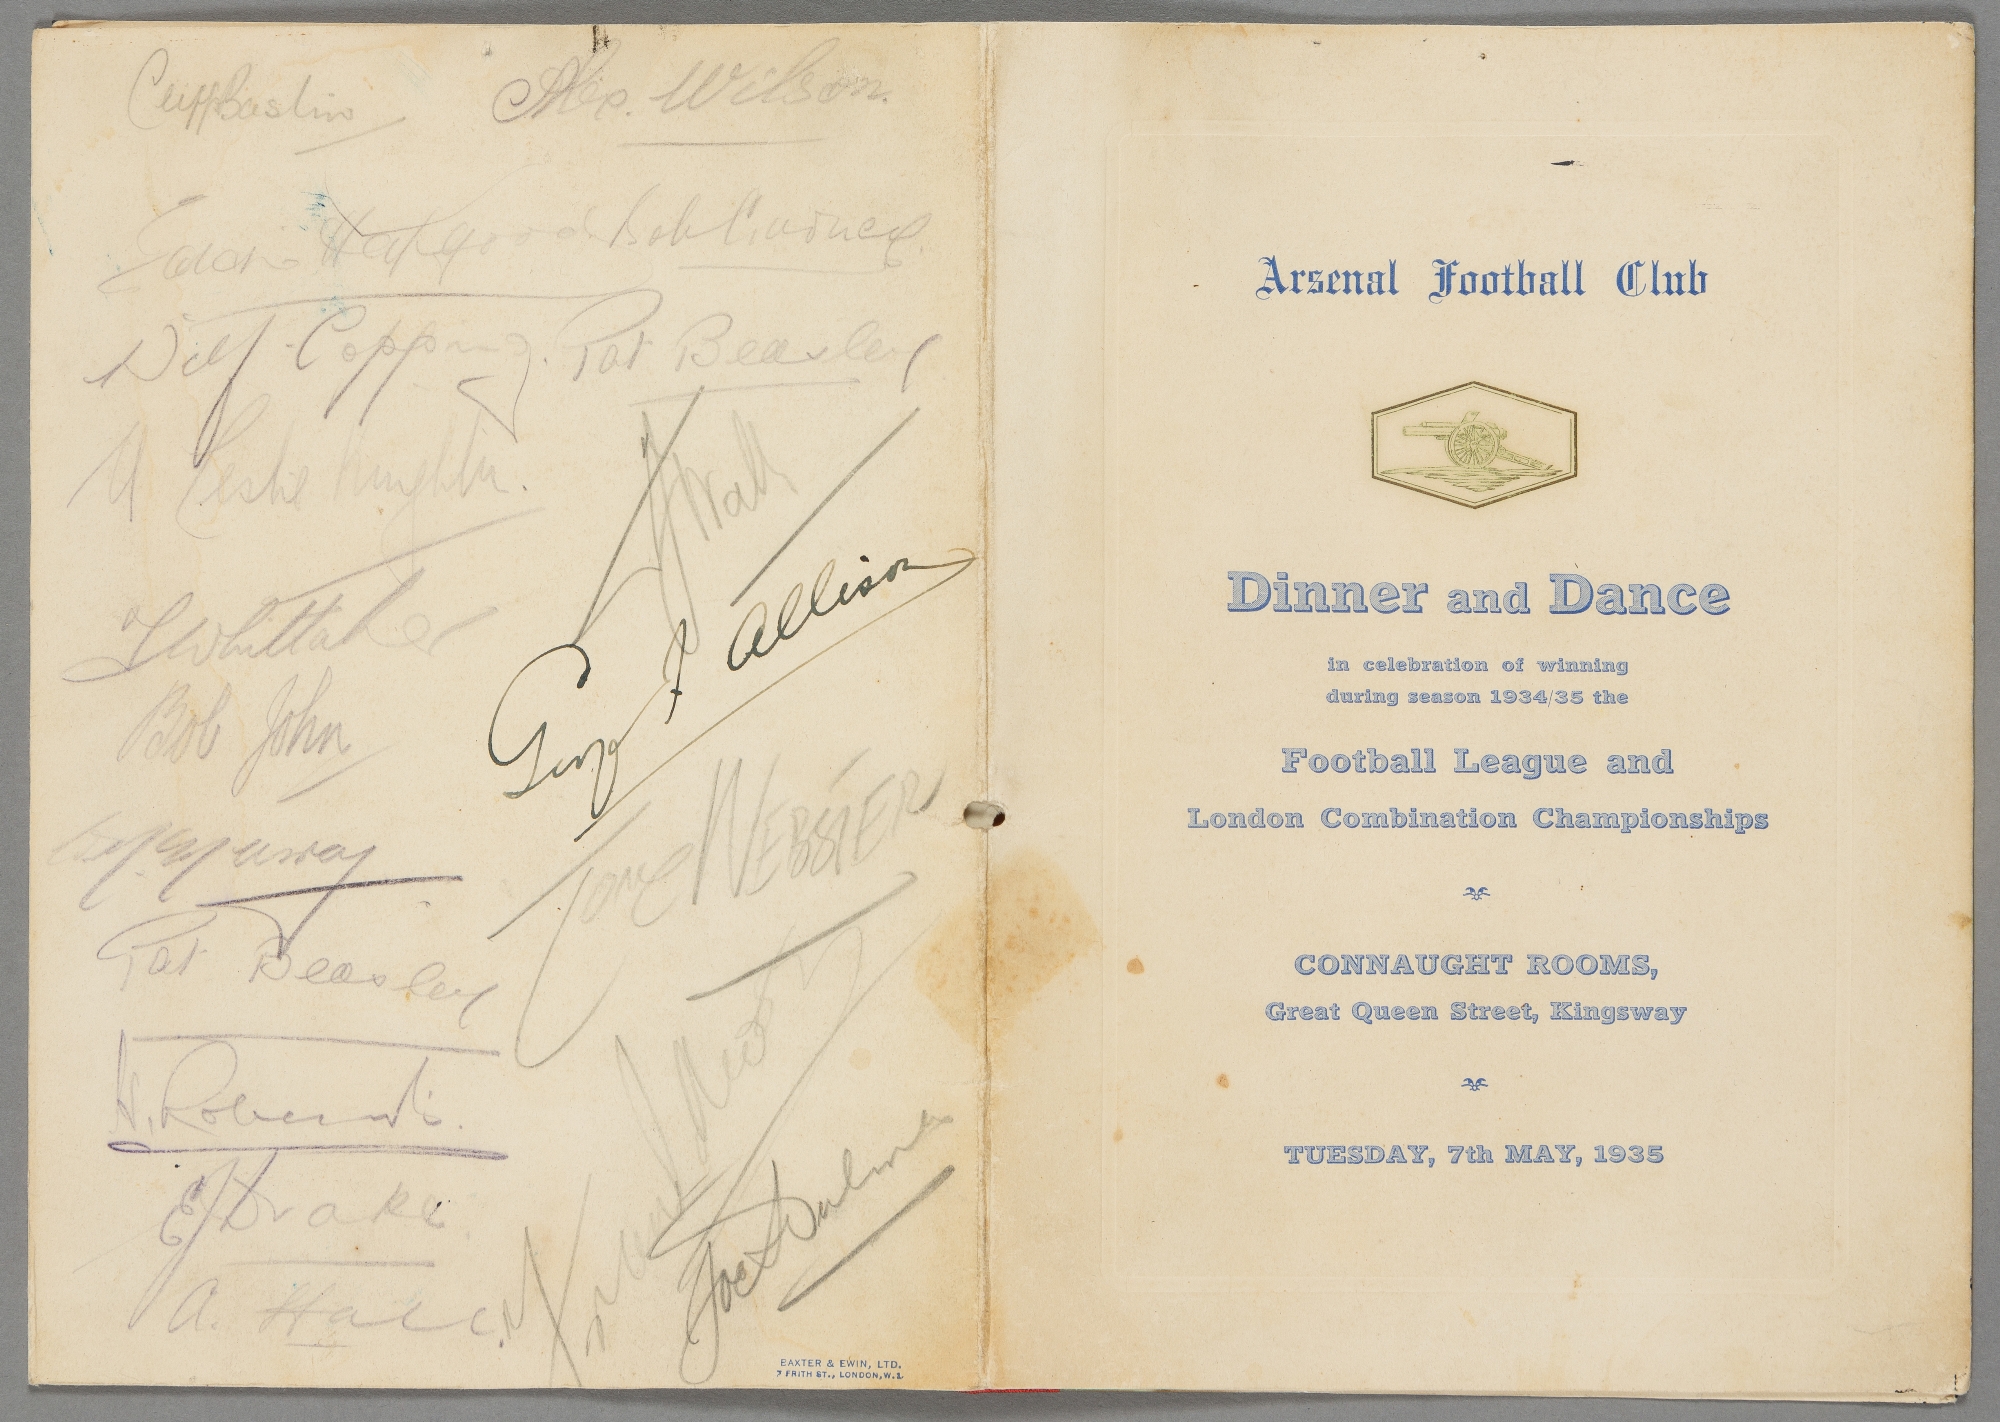 Cliff Bastin
Alex. Wilson.
Eddie Hapgood
Wilf. Copping.
Pat Beasley
Whittaker
George F Allison
Bob John
Tom WEBSTER
Pat Beasley
H. Roberts.
E J Drake
Joe Hulme
BAXTER & EWIN, LTD.
7 FRITH ST., LONDON, W.1.
Arsenal Football Club
Dinner and Dance
in celebration of winning
during season 1934/35 the
Football League and
London Combination Championships
CONNAUGHT ROOMS,
Great Queen Street, Kingsway
TUESDAY, 7th MAY, 1935